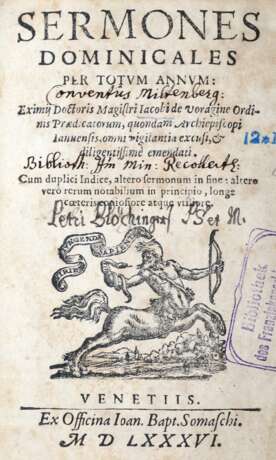 SERMONES
DOMINICALES
PER TOTVM ANNVM:
onventus Miltenberg:
Eximij Doctoris Magistri Iacobi de Voragine Ordi-
nis Prædicatorum, quondam Archiepiscopi
Ianuensis, omni vigilantia excusi, &
diligentissime emendati.
Biblioth: Min: Recollect:
Cum duplici Indice, altero sermonum in fine: altero
vero rerum notabilium in principio, longe
cæteris copiosiore atque
Petri S et M.
VIRES
VENETIIS.
Bibliothek
des Franzisk
Ex Officina Ioan. Bapt. Somaschi.
M D LXXXVI.